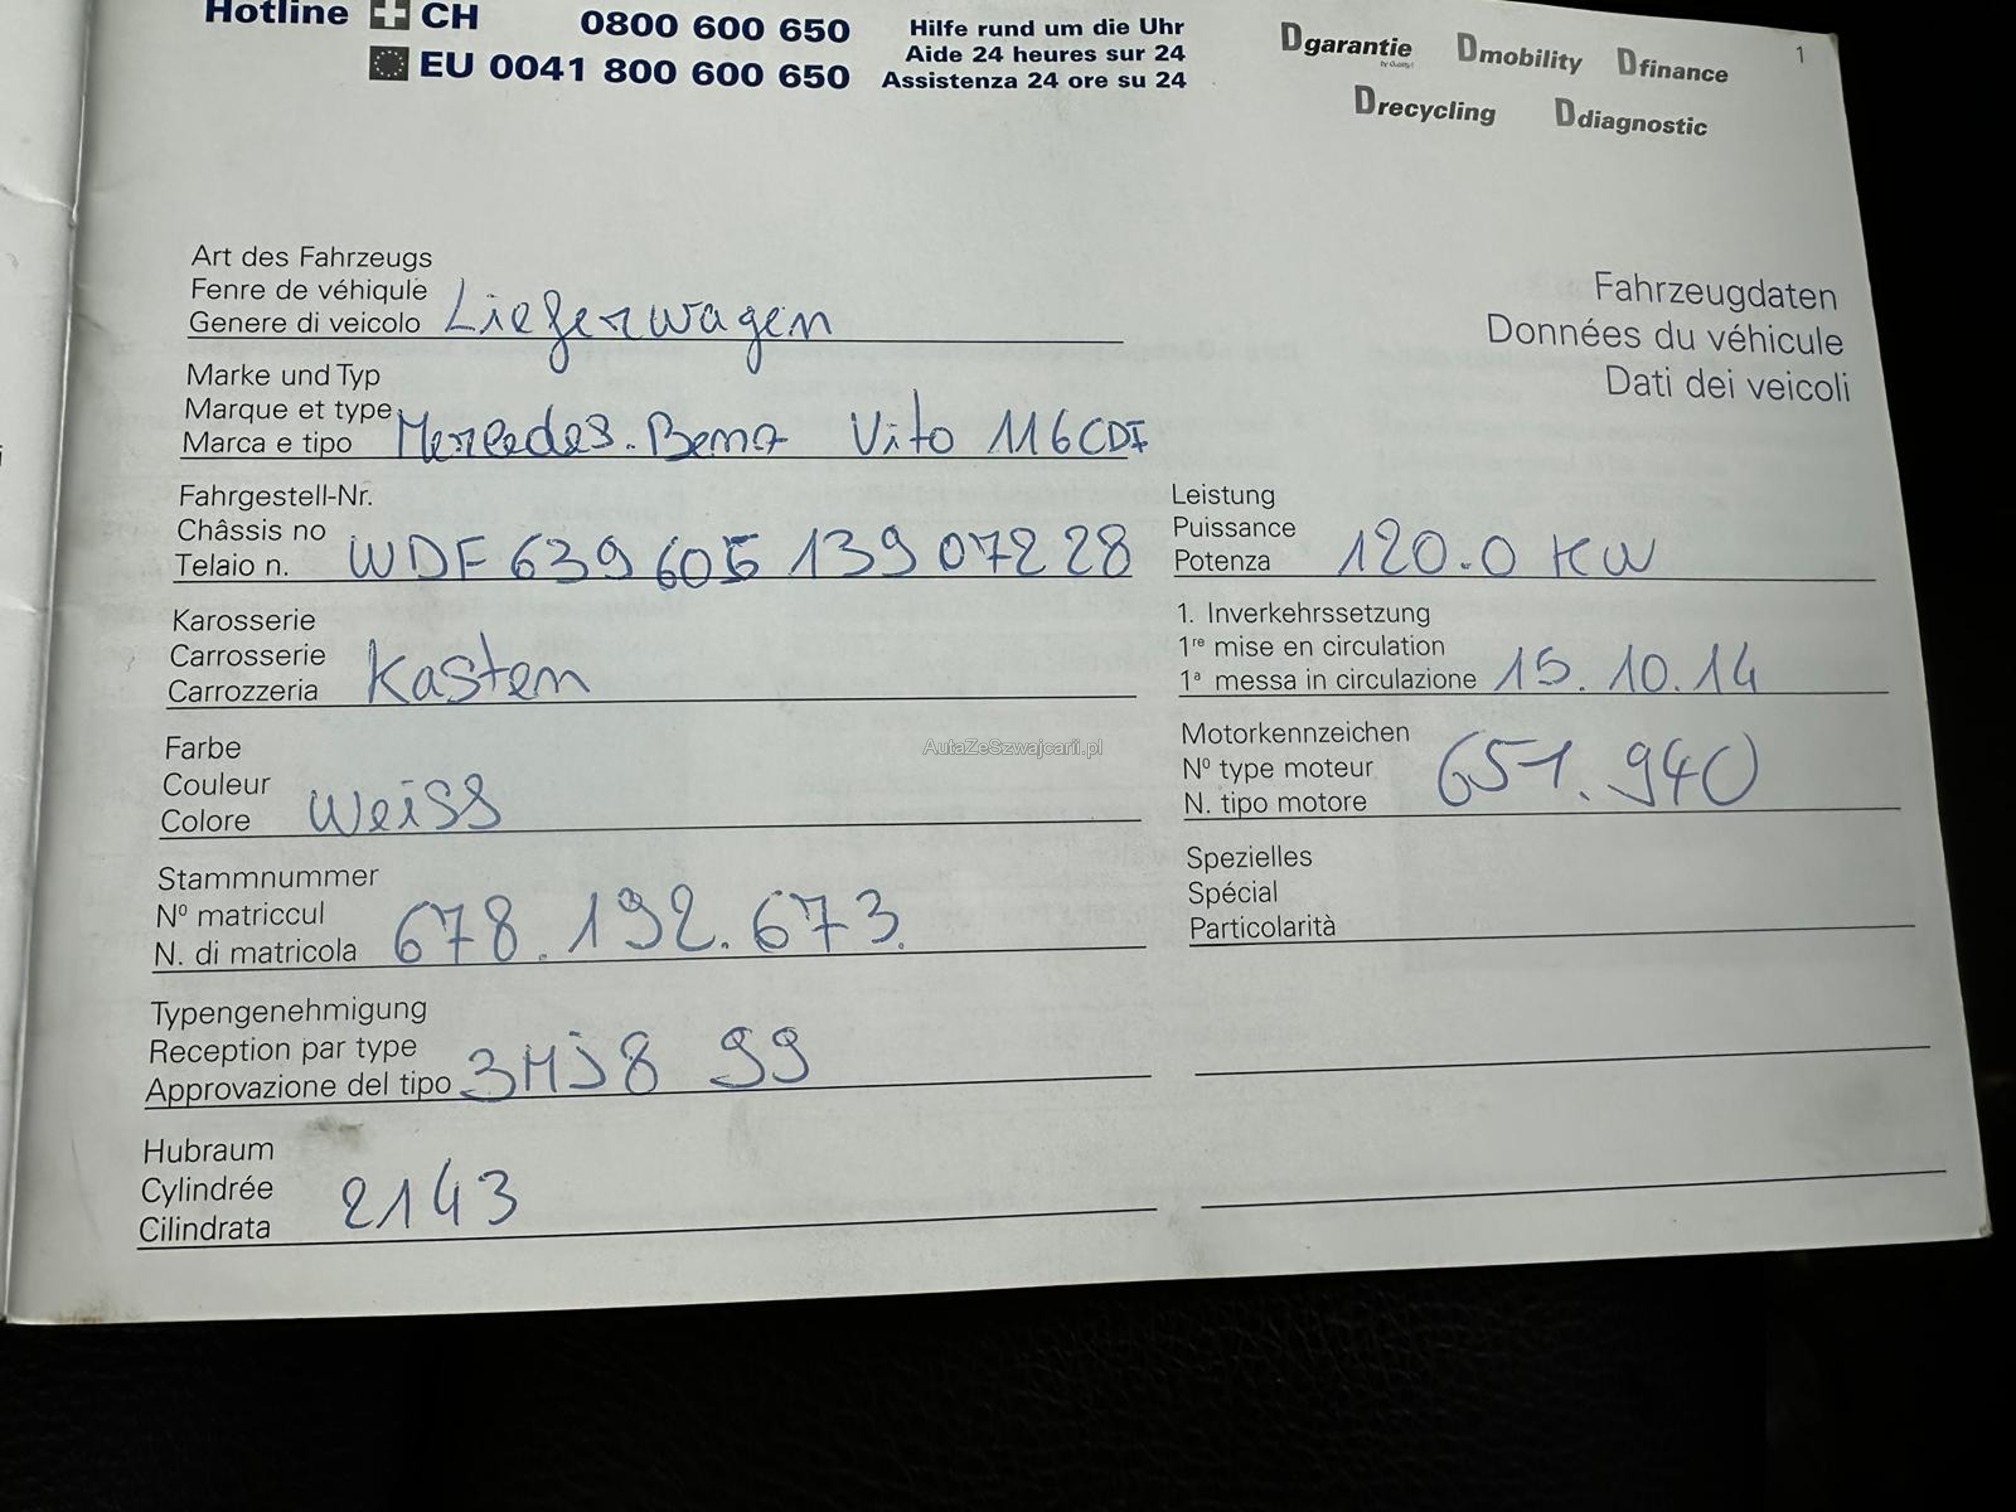 Hotline CH 0800 600 650
EU 0041 800 600 650
Hilfe rund um die Uhr
Aide 24 heures sur 24
Assistenza 24 ore su 24
Dgarantie Dmobility Dfinance
Drecycling Ddiagnostic
1
Fahrzeugdaten
Données du véhicule
Dati dei veicoli
Art des Fahrzeugs
Fenre de véhiqule
Genere di veicolo Lieferwagen
Marke und Typ
Marque et type
Marca e tipo Mercedes-Benz Vito 116CDI
Fahrgestell-Nr.
Châssis no
Telaio n. WDF 639 605 139 07228
Karosserie
Carrosserie
Carrozzeria Kasten
Farbe
Couleur
Colore Weiss
Stammnummer
Nº matriccul
N. di matricola 678.192.673.
Typengenehmigung
Reception par type
Approvazione del tipo 3MJ8 99
Hubraum
Cylindrée
Cilindrata 2143
Leistung
Puissance
Potenza 120.0 KW
1. Inverkehrssetzung
1re mise en circulation
1a messa in circulazione 15.10.14
Motorkennzeichen
Nº type moteur
N. tipo motore 651.940
Spezielles
Spécial
Particolarità
AutaZeSzwajcarii.pl